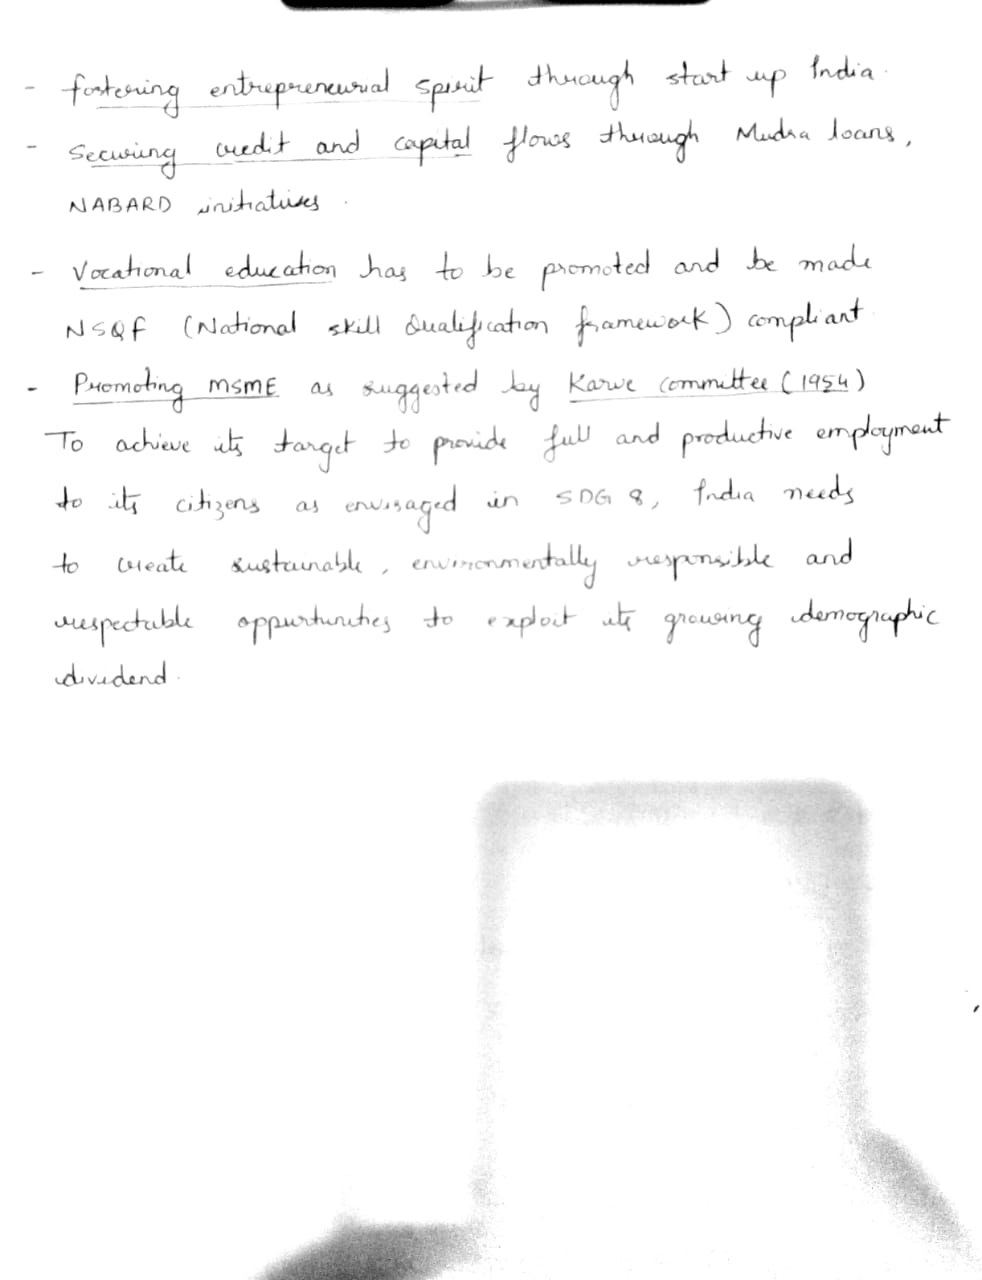 - fostering entrepreneurial spirit through start up India.
- Securing credit and capital flows through Mudra loans,
NABARD initiatives.
- Vocational education has to be promoted and be made
NSQF (National skill Qualification framework) compliant.
- Promoting MSME as suggested by Karve committee (1954)
To achieve its target to provide full and productive employment
to its citizens as envisaged in SDG 8, India needs
to create sustainable, environmentally responsible and
respectable oppurtunities to exploit its growing demographic
dividend.